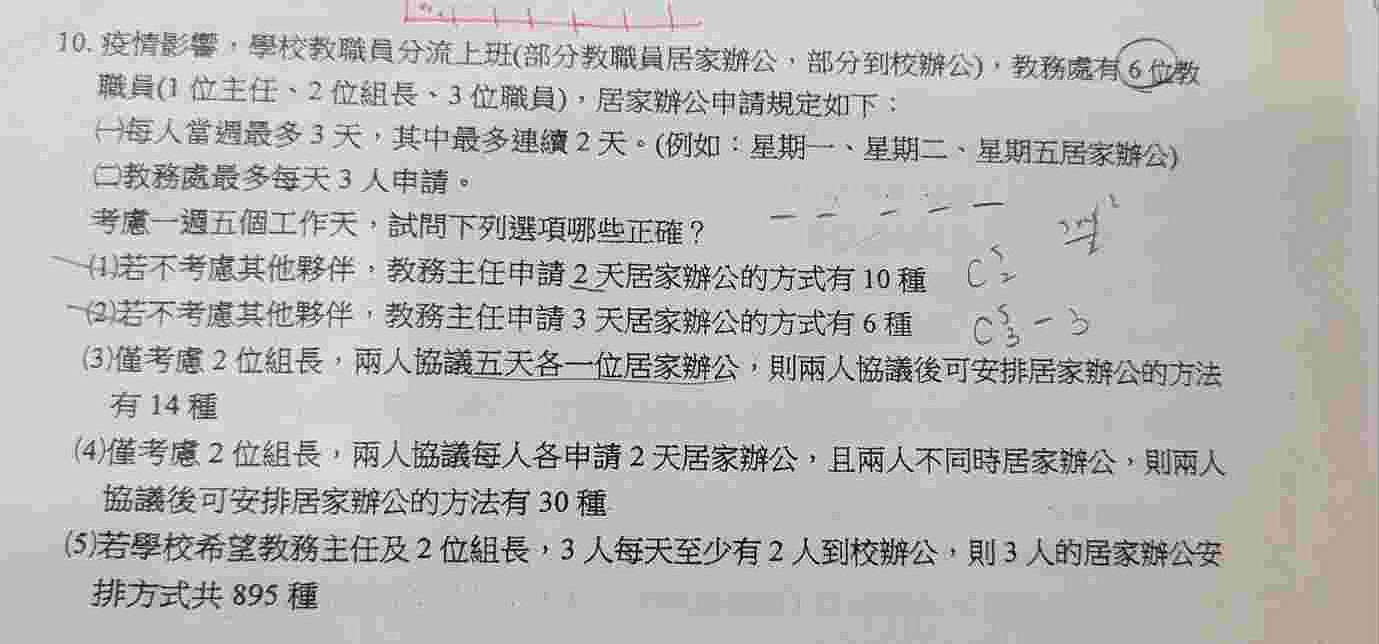 10. 疫情影響，學校教職員分流上班(部分教職員居家辦公，部分到校辦公)，教務處有 6 位教
職員(1 位主任、2 位組長、3 位職員)，居家辦公申請規定如下：
㈠每人當週最多 3 天，其中最多連續 2 天。(例如：星期一、星期二、星期五居家辦公)
㈡教務處最多每天 3 人申請。
考慮一週五個工作天，試問下列選項哪些正確？
⑴若不考慮其他夥伴，教務主任申請 2 天居家辦公的方式有 10 種 C⁵₂
⑵若不考慮其他夥伴，教務主任申請 3 天居家辦公的方式有 6 種 C⁵₃－3
⑶僅考慮 2 位組長，兩人協議五天各一位居家辦公，則兩人協議後可安排居家辦公的方法
有 14 種
⑷僅考慮 2 位組長，兩人協議每人各申請 2 天居家辦公，且兩人不同時居家辦公，則兩人
協議後可安排居家辦公的方法有 30 種
⑸若學校希望教務主任及 2 位組長，3 人每天至少有 2 人到校辦公，則 3 人的居家辦公安
排方式共 895 種